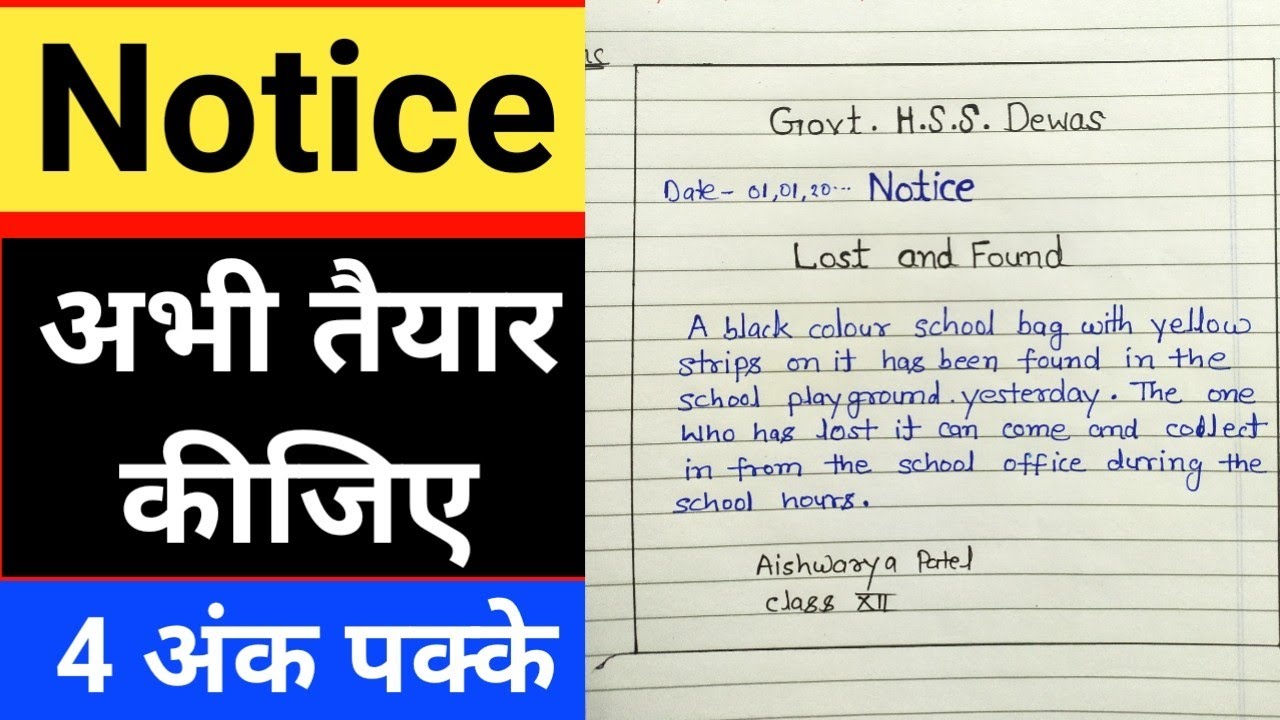 Notice
अभी तैयार
कीजिए
4 अंक पक्के
Govt. H.S.S. Dewas
Date - 01,01,20... Notice
Lost and Found
A black colour school bag with yellow
strips on it has been found in the
school playground. yesterday. The one
who has lost it can come and collect
in from the school office during the
school hours.
Aishwarya Patel
class XII